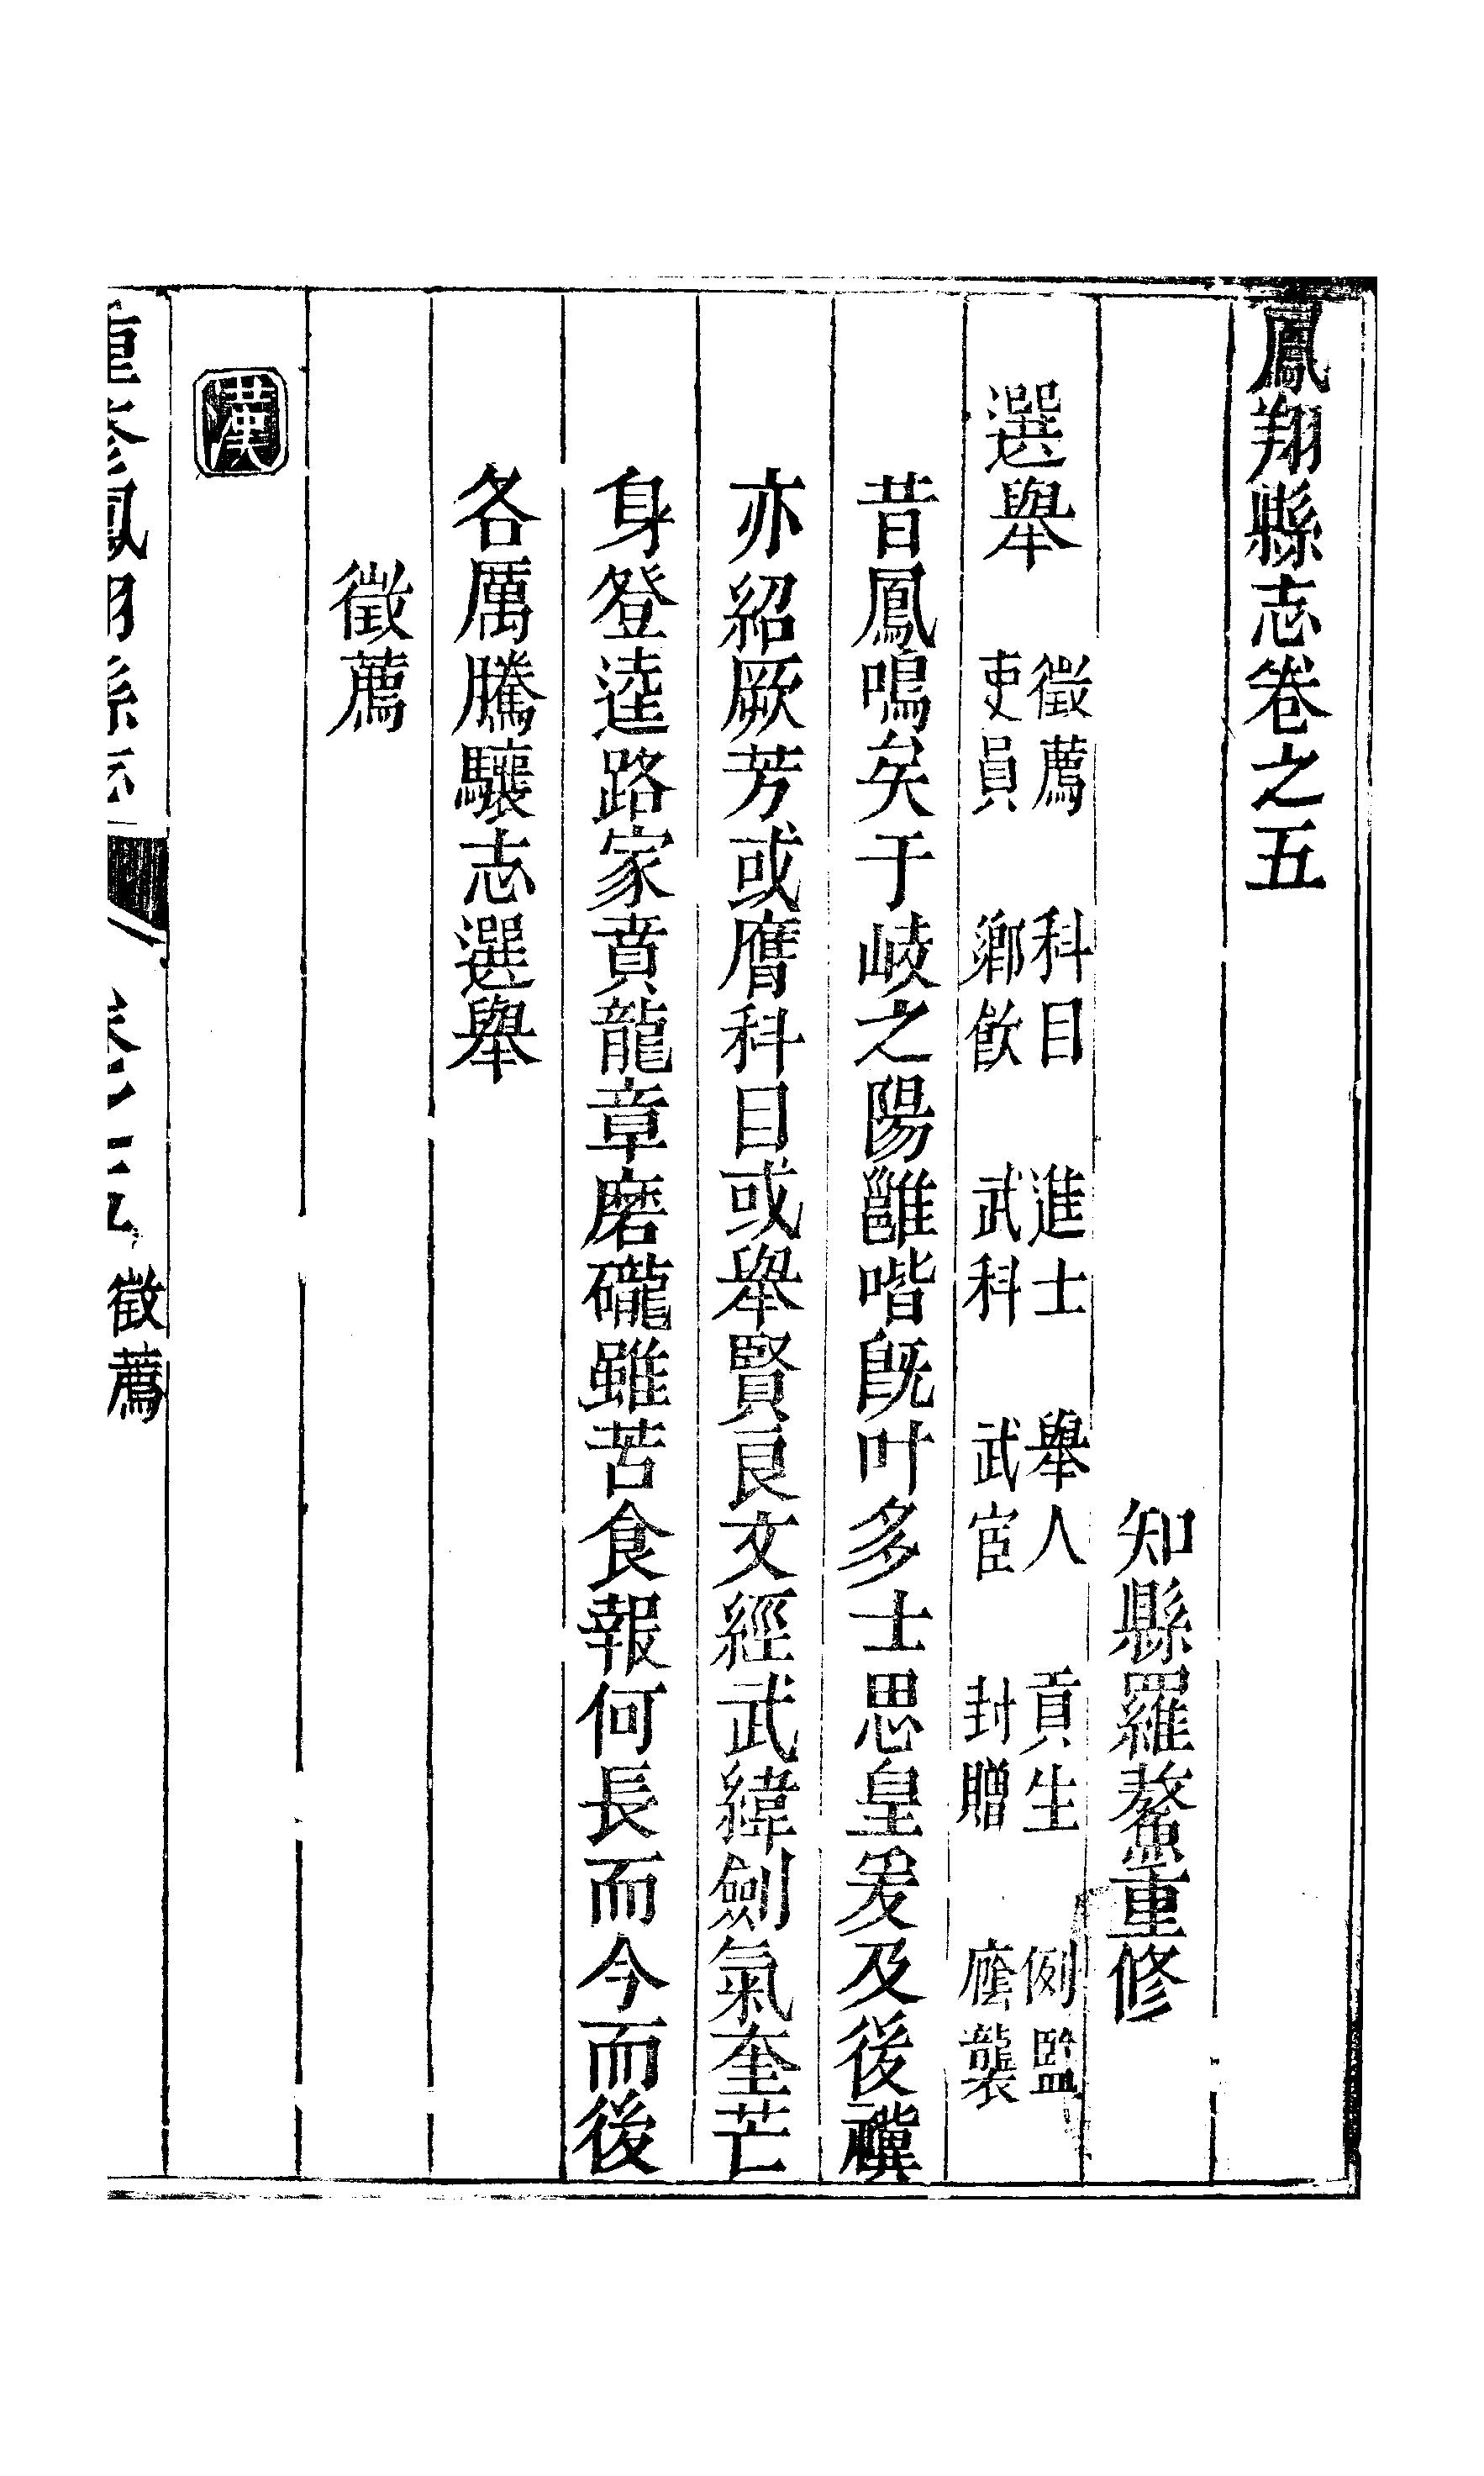 鳳翔縣志卷之五
知縣羅鰲重修
選舉
徵薦 科目 進士 舉人 貢生 例監
吏員 鄉飲 武科 武宦 封贈 廕襲
昔鳳鳴矣于岐之陽雝喈旣叶多士思皇爰及後禩
亦紹厥芳或膺科目或舉賢良文經武緯劍氣奎芒
身登逵路家賁龍章磨礲雖苦食報何長而今而後
各厲騰驤志選舉
徵薦
漢
重修鳳翔縣志
卷之五 徵薦